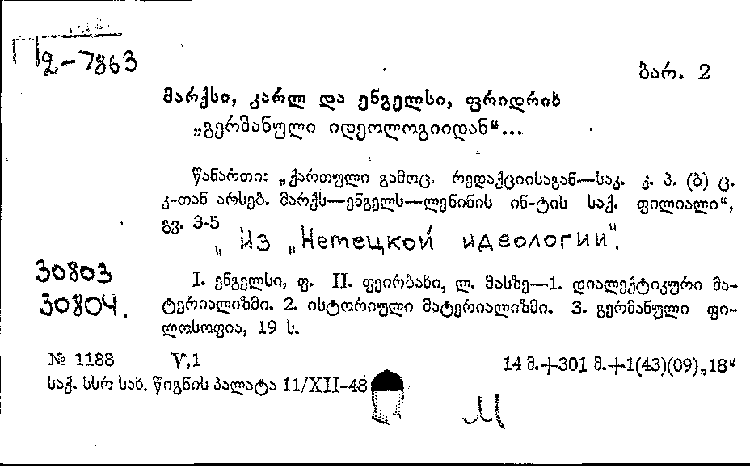 2-7863
ბარ. 2
მარქსი, კარლ და ენგელსი, ფრიდრიხ
„გერმანული იდეოლოგიიდან“...
წანართი: „ქართული გამოც. რედაქციისაგან—საკ. კ. პ. (ბ) ც.
კ-თან არსებ. მარქს—ენგელს—ლენინის ინ-ტის საქ. ფილიალი“,
გვ. 3-5
„Из „Немецкой идеологии“.
30803
I. ენგელსი, ფ. II. ფეირბახი, ლ. მასზე—1. დიალექტიკური მა-
30804.
ტერიალიზმი. 2. ისტორიული მატერიალიზმი. 3. გერმანული ფი-
ლოსოფია, 19 ს.
№ 1188 V,1 14 მ.+301 მ.+1(43)(09)„18“
საქ. სსრ სახ. წიგნის პალატა 11/XII-48
М